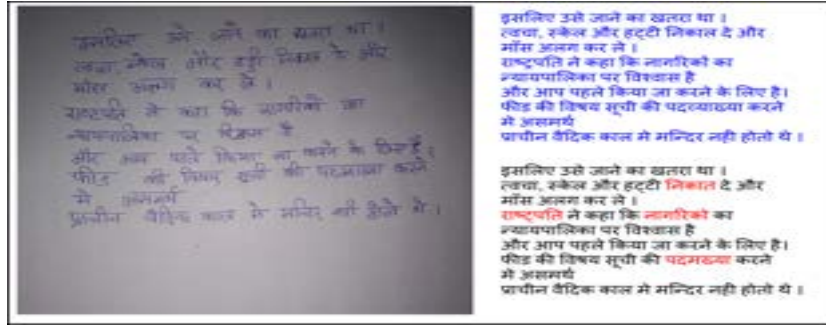 इसलिए उसे जाने का खतरा था ।
त्वचा, स्केल और हड्डी निकाल दे और
माँस अलग कर ले ।
राष्ट्रपति ने कहा कि नागरिकों का
न्यायपालिका पर विश्वास है
और आप पहले किया जा करने के लिए है।
फीड की विषय सूची की करने
मे असमर्थ
प्राचीन वैदिक काल मे मन्दिर नही होतो थे ।
इसलिए उसे जाने का खतरा था ।
त्वचा, स्केल और हट्टी निकाल दे और
माँस अलग कर ले ।
राष्ट्रपति ने कहा कि नागरिकों का
न्यायपालिका पर विश्वास है
और आप पहले किया जा करने के लिए है।
फीड की विषय सूची की पदव्याख्या करने
मे असमर्थ
प्राचीन वैदिक काल मे मन्दिर नही होतो थे ।
इसलिए उसे जाने का खतरा था ।
त्वचा, स्केल और हट्टी निकात दे और
माँस अलग कर ले ।
राष्ट्पति ने कहा कि नागरिको का
न्यायपालिका पर विश्वास है
और आप पहले किया जा करने के लिए है।
फीड की विषय सूची की पदमख्या करने
मे असमर्थ
प्राचीन वैदिक काल मे मन्दिर नही होतो थे ।